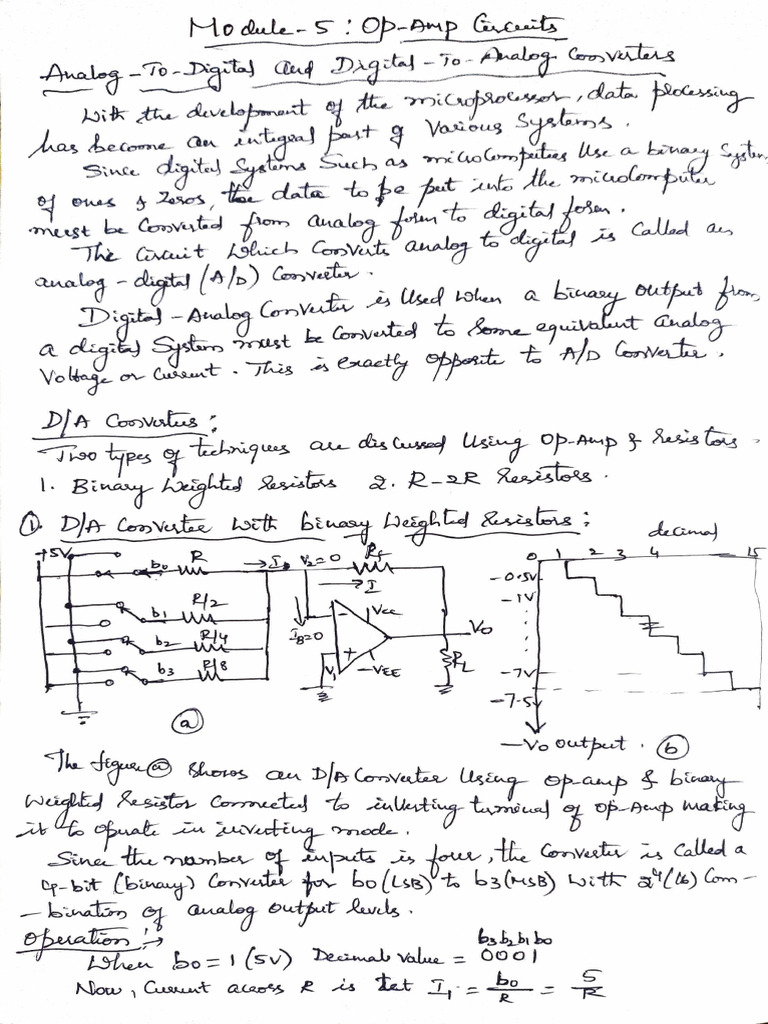 Module-5 : Op-Amp Circuits
Analog-To-Digital and Digital-To-Analog Converters
With the development of the microprocessor, data processing
has become an integral part of various systems.
Since digital systems such as microcomputers use a binary system
of ones & zeros, the data to be put into the microcomputer
must be converted from analog form to digital form.
The circuit which converts analog to digital is called an
analog-digital (A/D) converter.
Digital-Analog Converter is used when a binary output from
a digital system must be converted to some equivalent analog
voltage or current. This is exactly opposite to A/D converter.
D/A Converters:
Two types of techniques are discussed using op-Amp & resistors.
1. Binary weighted resistors 2. R-2R resistors.
① D/A converter with binary weighted resistors:
decimal
+5V b0 R I V2=0 Rf
0 1 2 3 4 15
-0.5V
I
b1 R/2
-1V
+VCC
b2 R/4 IB=0 - VO
b3 R/8 + V1 -VEE RL
-7V
-7.5V
ⓐ
-Vo output. ⓑ
The figure ⓐ shows an D/A converter using op-amp & binary
weighted resistor connected to inverting terminal of op-Amp making
it to operate in inverting mode.
Since the number of inputs is four, the converter is called a
4-bit (binary) converter for b0(LSB) to b3(MSB) with 2⁴(16) com-
-bination of analog output levels.
Operation :→
b3b2b1b0
When b0=1 (5V) Decimal value = 0001
Now, Current across R is let I1 = b0/R = 5/R